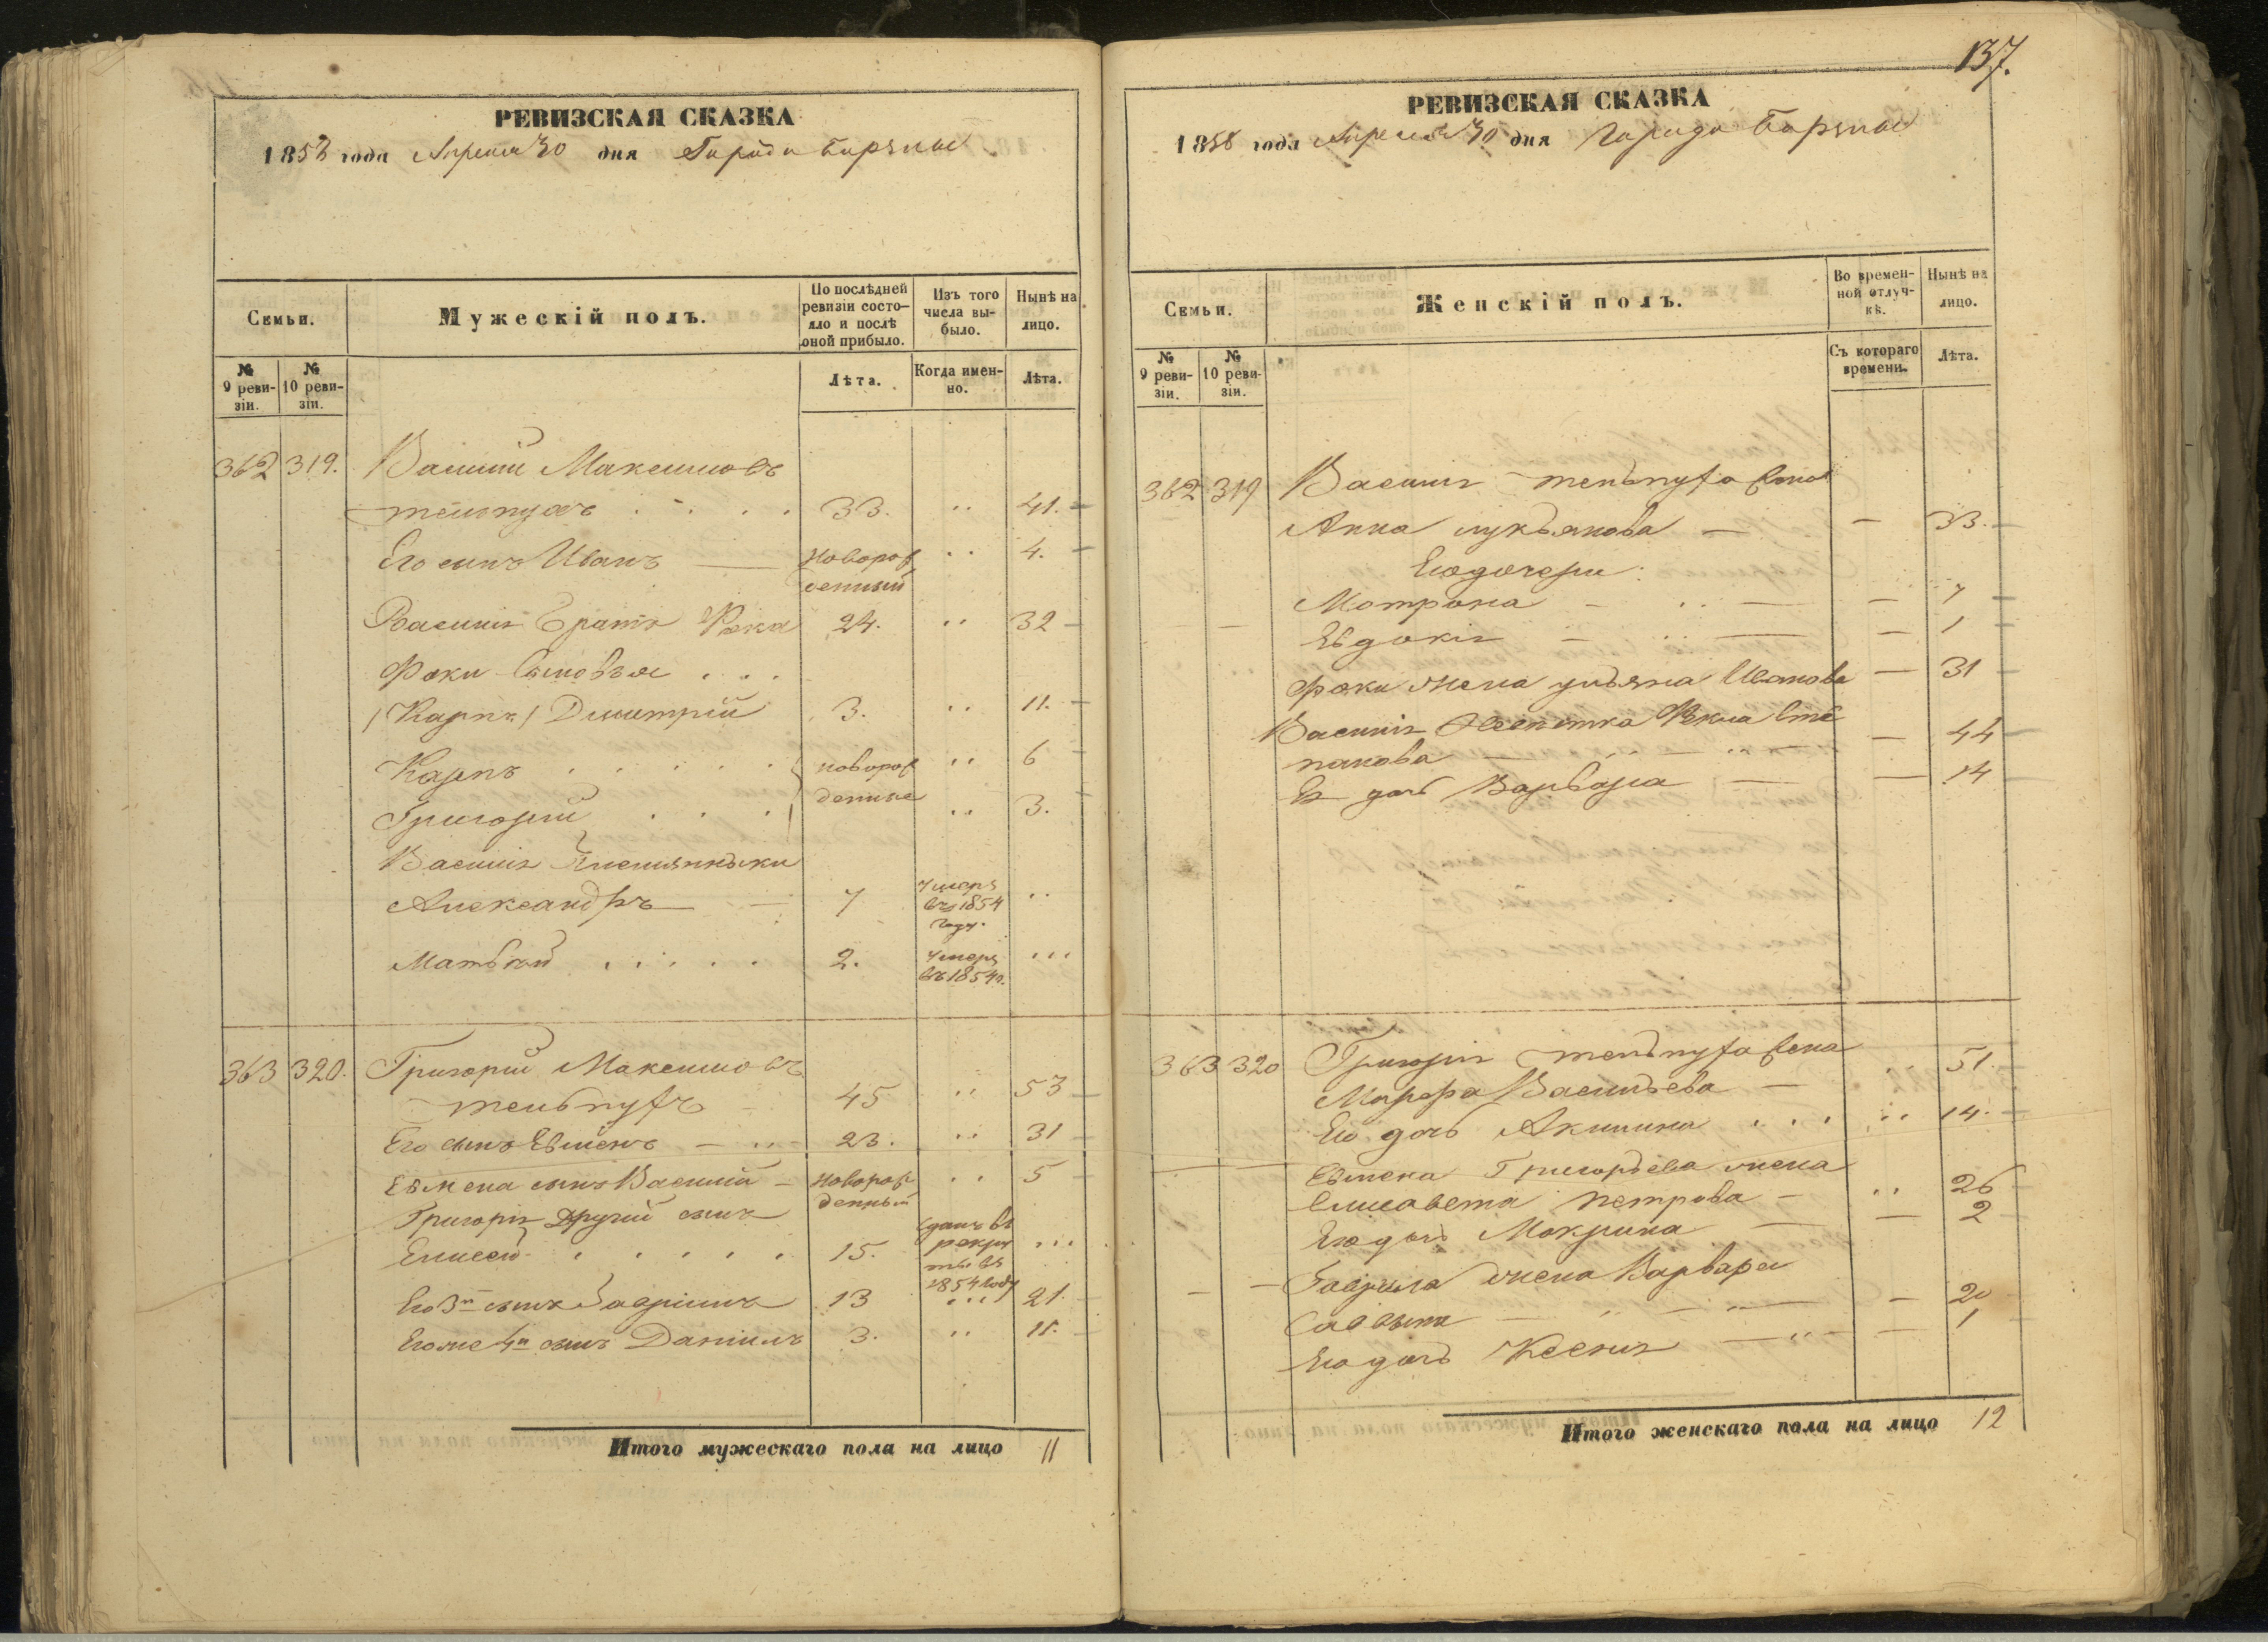 137.
РЕВИЗСКАЯ СКАЗКА
1858 года Апреля 30 дня Города
Семьи.
Мужескій полъ.
По послѣдней ревизіи состояло и послѣ оной прибыло.
Изъ того числа выбыло.
Нынѣ на лицо.
№ 9 ревизіи.
№ 10 ревизіи.
Лѣта.
Когда именно.
Лѣта.
362 319. Василий Максимовъ
33. 41.
Его сынъ Иванъ Новорожденный 4.
Василія братъ Фока 24. 32
Фоки сыновья
/Карпъ/ Димитрій 3. 11.
Карпъ новорожденные 6
Григорій 3.
Василія племянники
Александръ 7 умеръ въ 1854 году.
Матвѣй 2. умеръ въ 1854 г.
363 320. Григорій Максимовъ
45 53
Его сынъ Евменъ 23. 31
Евмена сынъ Василій Новорожденный 5
Григорія другій сынъ
Елисей 15. сданъ въ рекруты въ 1854 году
Его 3й сынъ Гавріилъ 13 21.
Его же 4й сынъ Даніилъ 3. 11.
Итого мужескаго пола на лицо 11
РЕВИЗСКАЯ СКАЗКА
1858 года Апреля 30 дня Города
Семьи.
Женскій полъ.
Во временной отлучкѣ.
Нынѣ на лицо.
№ 9 ревизіи.
№ 10 ревизіи.
Съ котораго времени.
Лѣта.
362 319 Василія жена
Анна Лукьянова 33.
Его дочери:
Мотрона 7
Евдокія 1
Фоки жена Ульяна Иванова 31
Василія невѣстка Фекла Степанова 44
Ея дочь Варвара 14
363 320 Григорія жена
Васильева 51.
Его дочь Акилина 14.
Евмена Григорьева жена
Елисавета Петрова 26
Его дочь Макрина 2
Гаврила жена Варвара
Саввина 20
Его дочь Ксенія 1
Итого женскаго пола на лицо 12